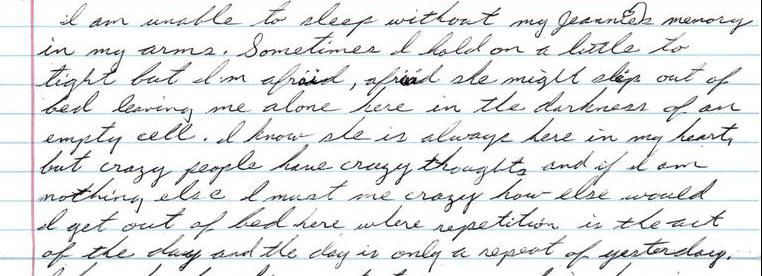 I am unable to sleep without my Jeannie's memory
in my arms. Sometimes I hold on a little to
tight but I'm afraid, afraid she might slip out of
bed leaving me alone here in the darkness of an
empty cell. I know she is always here in my heart,
but crazy people have crazy thoughts and if I am
nothing else I must me crazy how else would
I get out of bed here where repetition is the act
of the day and the day is only a repeat of yesterday.